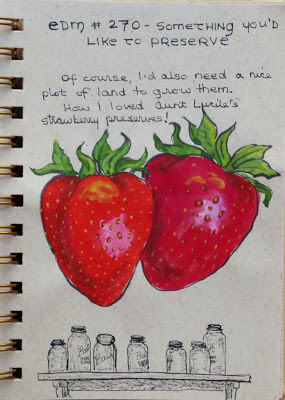 EDM # 270 - SOMETHING YOU'D
LIKE TO PRESERVE
Of course, I'd also need a nice
plot of land to grow them.
How I loved Aunt Lucile's
strawberry preserves!
Ball